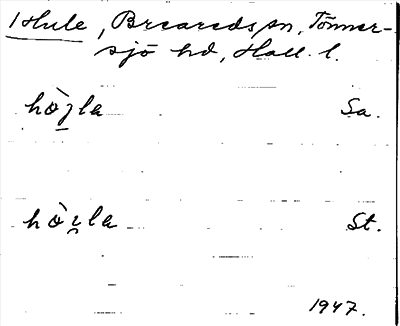 1 Hule, Breareds sn, Tönner-
sjö hd, Hall. l.
hò̱ʒla Sa.
hòꭋ̯la St.
1947.